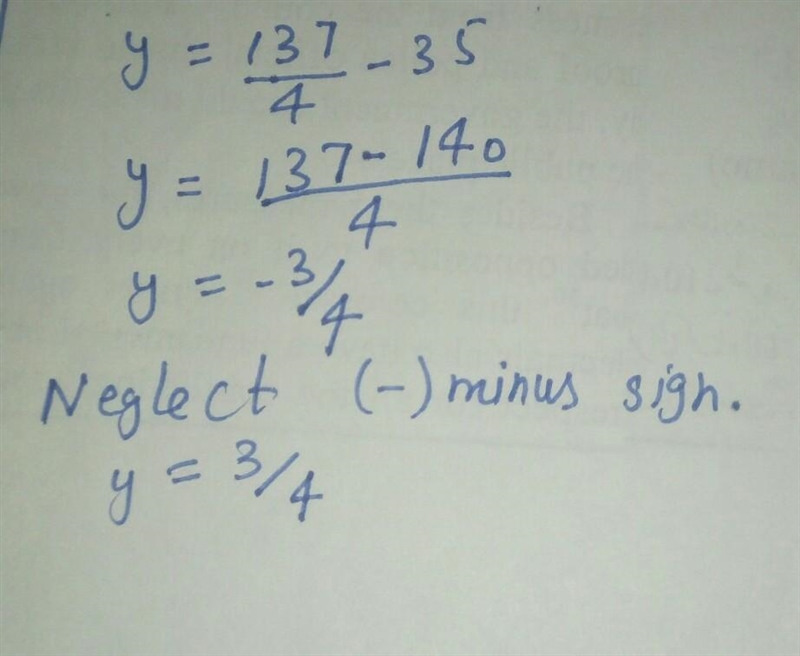 y = 137/4 - 35
y = 137 - 140/4
y = - 3/4
Neglect (-) minus sign.
y = 3/4